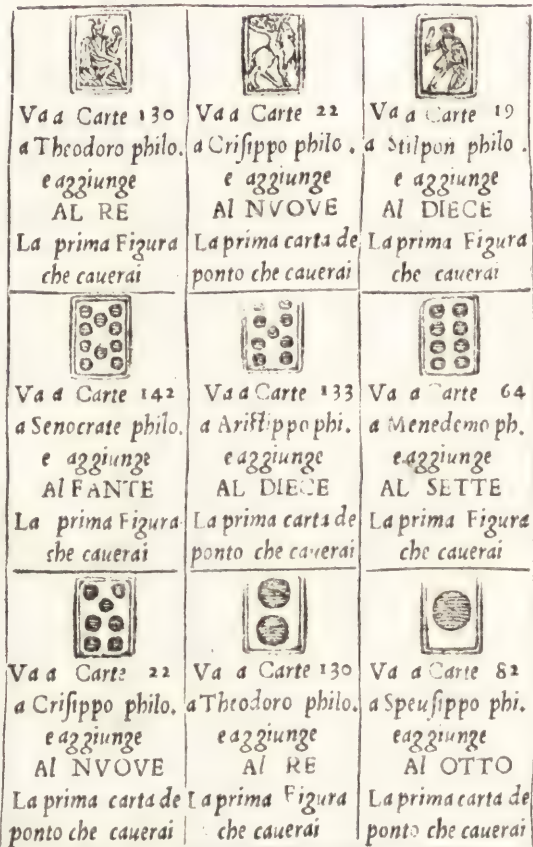 Va a Carte 130
a Theodoro philo.
e aggiunge
AL RE
La prima Figura
che cauerai
Va a Carte 22
a Criſippo philo.
e aggiunge
Al NVOVE
La prima carta de
ponto che cauerai
Va a Carte 19
a Stilpon philo.
e aggiunge
Al DIECE
La prima Figura
che cauerai
Va a Carte 142
a Senocrate philo.
e aggiunge
Al FANTE
La prima Figura
che cauerai
Va a Carte 133
a Ariſtippo phi.
e aggiunge
AL DIECE
La prima carta de
ponto che cauerai
Va a Carte 64
a Menedemo ph.
e aggiunge
AL SETTE
La prima Figura
che cauerai
Va a Carte 22
a Criſippo philo.
e aggiunge
Al NVOVE
La prima carta de
ponto che cauerai
Va a Carte 130
a Theodoro philo.
e aggiunge
Al RE
La prima Figura
che cauerai
Va a Carte 82
a Speuſippo phi.
e aggiunge
Al OTTO
La prima carta de
ponto che cauerai